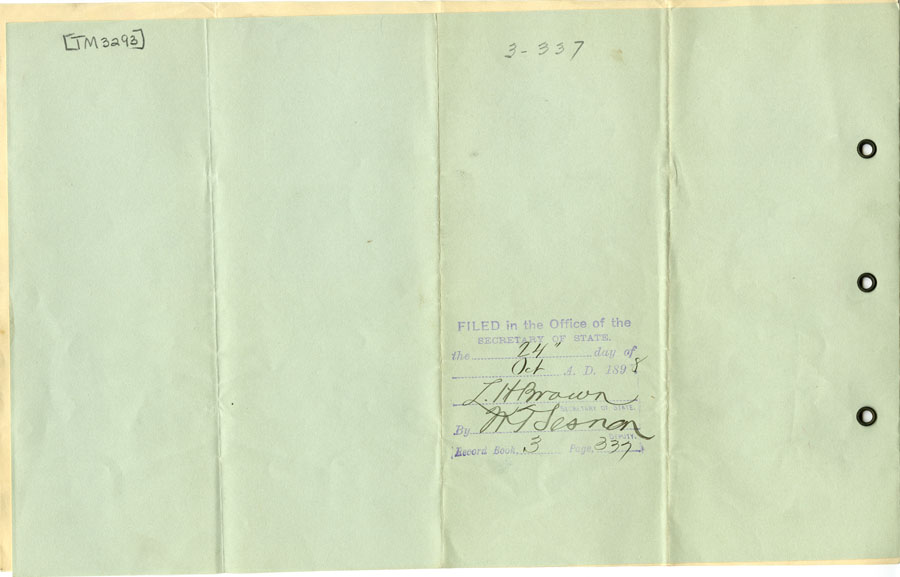 [TM3293]
3-337
FILED in the Office of the
SECRETARY OF STATE.
the 24" day of
Oct A. D. 1898
L. H Brown
SECRETARY OF STATE.
By W T Sesnon
DEPUTY.
Record Book, 3 Page, 337